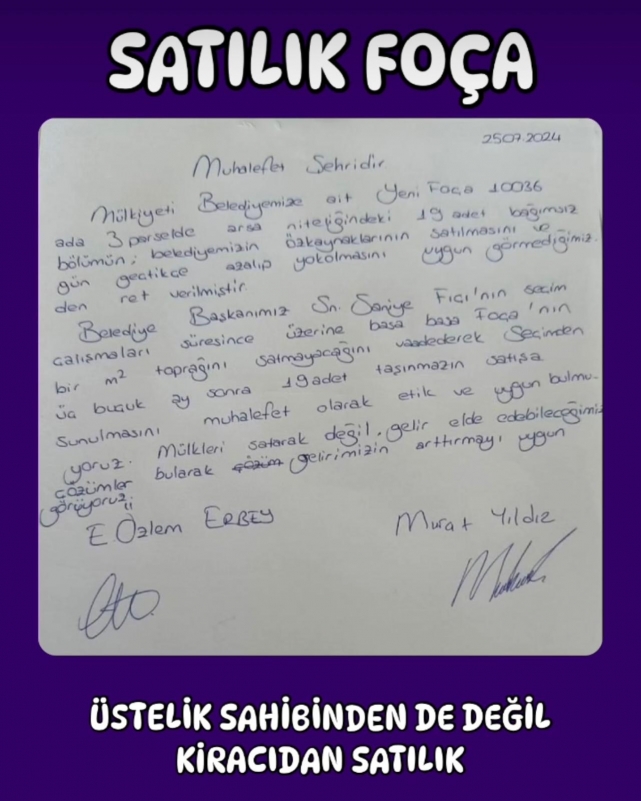 SATILIK FOÇA
25.07.2024
Muhalefet Şehridir
Mülkiyeti Belediyemize ait Yeni Foça 10036
ada 3 parselde arsa niteliğindeki 19 adet bağımsız
bölümün; belediyemizin özkaynaklarının satılmasını ve
gün geçtikçe azalıp yokolmasını uygun görmediğimiz-
den ret verilmiştir.
Belediye Başkanımız Sn. Saniye Fıçı'nın seçim
çalışmaları süresince üzerine basa basa Foça'nın
bir m² toprağını satmayacağını vaadederek Seçimden
üç buçuk ay sonra 19 adet taşınmazın satışa
sunulmasını muhalefet olarak etik ve uygun bulmu-
yoruz. Mülkleri satarak değil, gelir elde edebileceğimiz
çözümler bularak çözüm gelirimizin arttırmayı uygun
görüyoruz.
E. Özlem ERBEY
Murat Yıldız
ÜSTELİK SAHİBİNDEN DE DEĞİL
KİRACIDAN SATILIK